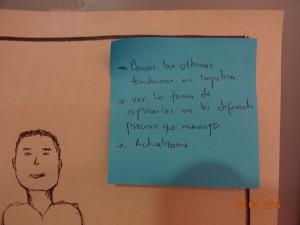 → Conocer las ultimas
tendencias en logistica
→ ver la forma de
aplicarlas en los diferentes
procesos que manejo.
→ Actualizarme